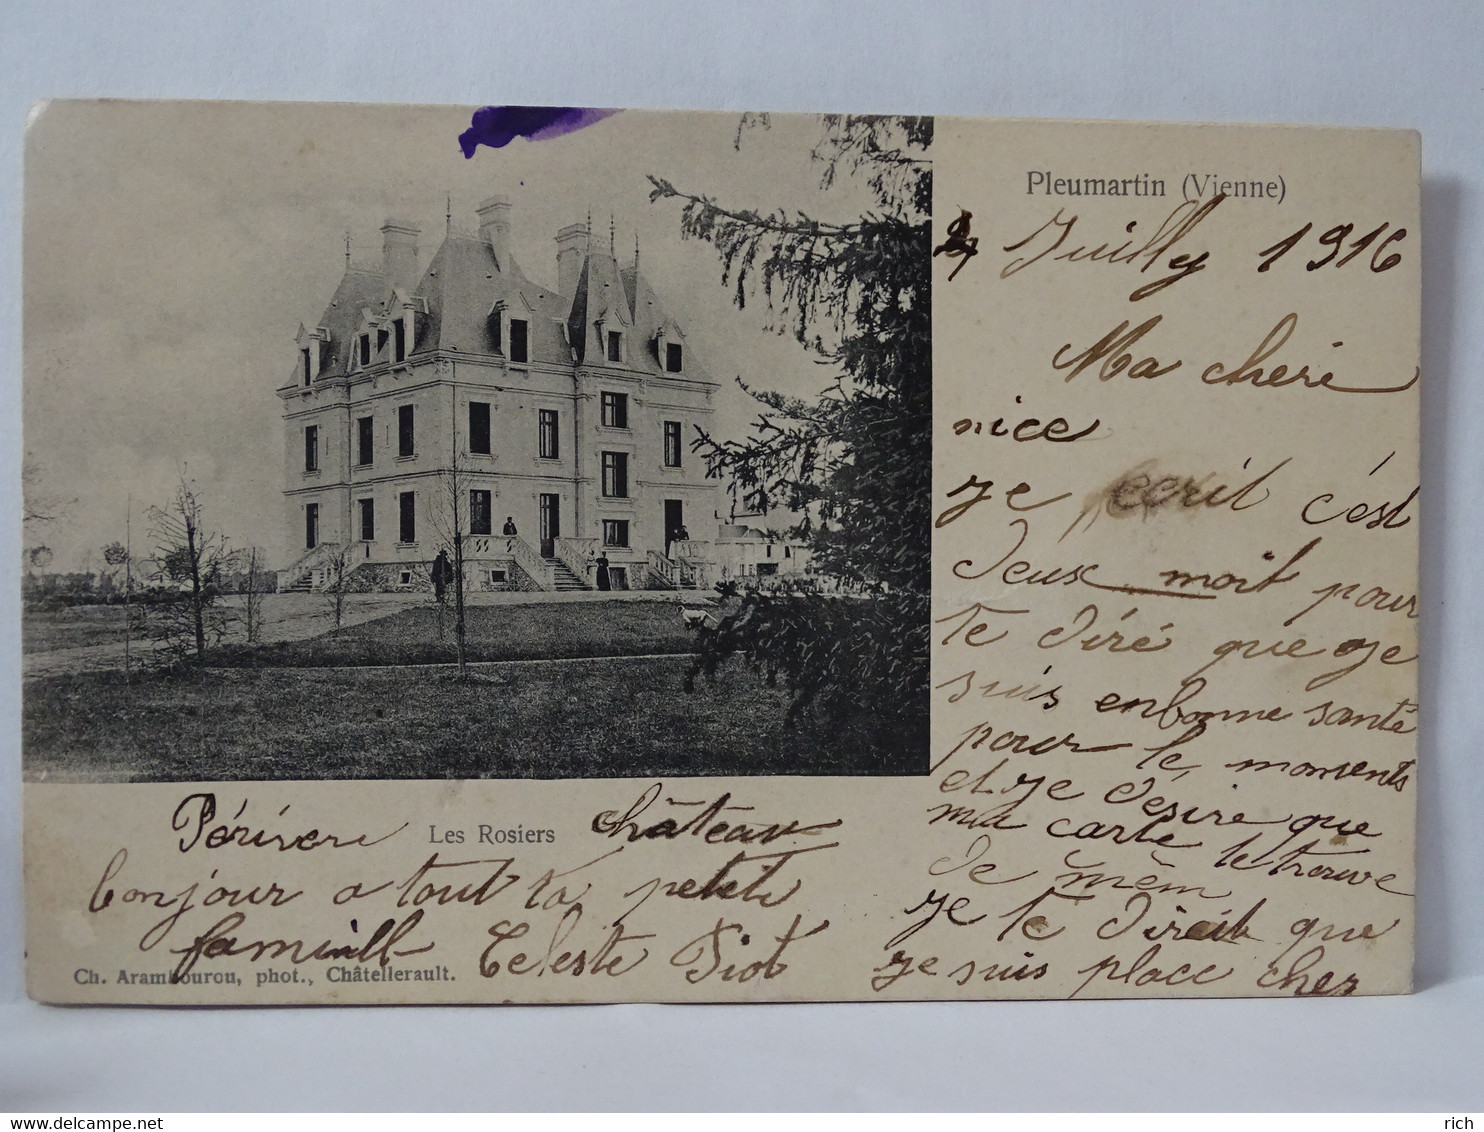 Pleumartin (Vienne)
4 Juilly 1916
Ma cheri
nice
je ecrit c'est
deux moit pour
te diré que je
suis enbonne santé
pour le moments
et je désire que
ma carte te trouve
de mêm
je te direit que
je suis place cher
Périvere Les Rosiers château
bonjour a tout ta petite
famill Celeste Piot
Ch. Arambourou, phot., Châtellerault.
delcampe.net
rich